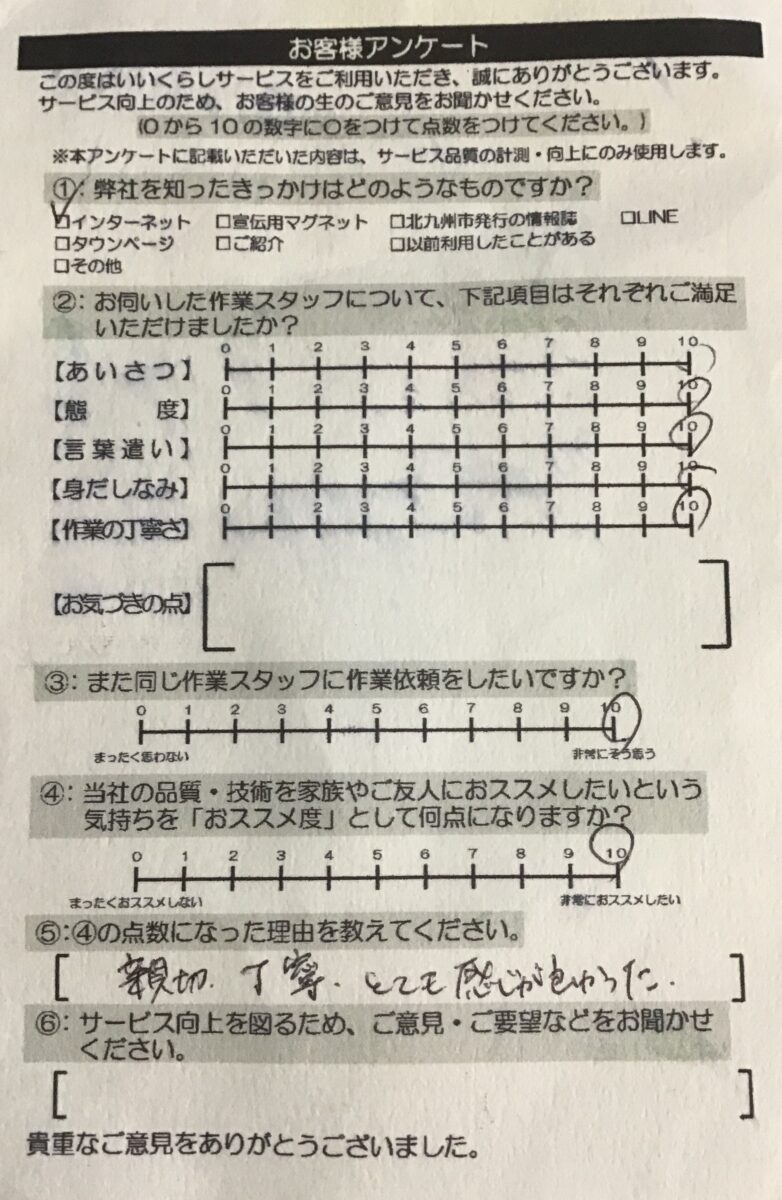 お客様アンケート
この度はいいくらしサービスをご利用いただき、誠にありがとうございます。
サービス向上のため、お客様の生のご意見をお聞かせください。
(0から10の数字に○をつけて点数をつけてください。)
※本アンケートに記載いただいた内容は、サービス品質の計測・向上にのみ使用します。
①：弊社を知ったきっかけはどのようなものですか？
□インターネット □宣伝用マグネット □北九州市発行の情報誌 □LINE
□タウンページ □ご紹介 □以前利用したことがある
□その他
②：お伺いした作業スタッフについて、下記項目はそれぞれご満足
いただけましたか？
0 1 2 3 4 5 6 7 8 9 10
【あいさつ】
0 1 2 3 4 5 6 7 8 9 10
【態 度】
0 1 2 3 4 5 6 7 8 9 10
【言葉遣い】
0 1 2 3 4 5 6 7 8 9 10
【身だしなみ】
0 1 2 3 4 5 6 7 8 9 10
【作業の丁寧さ】
【お気づきの点】
③：また同じ作業スタッフに作業依頼をしたいですか？
0 1 2 3 4 5 6 7 8 9 10
まったく思わない 非常にそう思う
④：当社の品質・技術を家族やご友人におススメしたいという
気持ちを「おススメ度」として何点になりますか？
0 1 2 3 4 5 6 7 8 9 10
まったくおススメしない 非常におススメしたい
⑤：④の点数になった理由を教えてください。
[ 親切. 丁寧. とても感じが良かった. ]
⑥：サービス向上を図るため、ご意見・ご要望などをお聞かせ
ください。
貴重なご意見をありがとうございました。